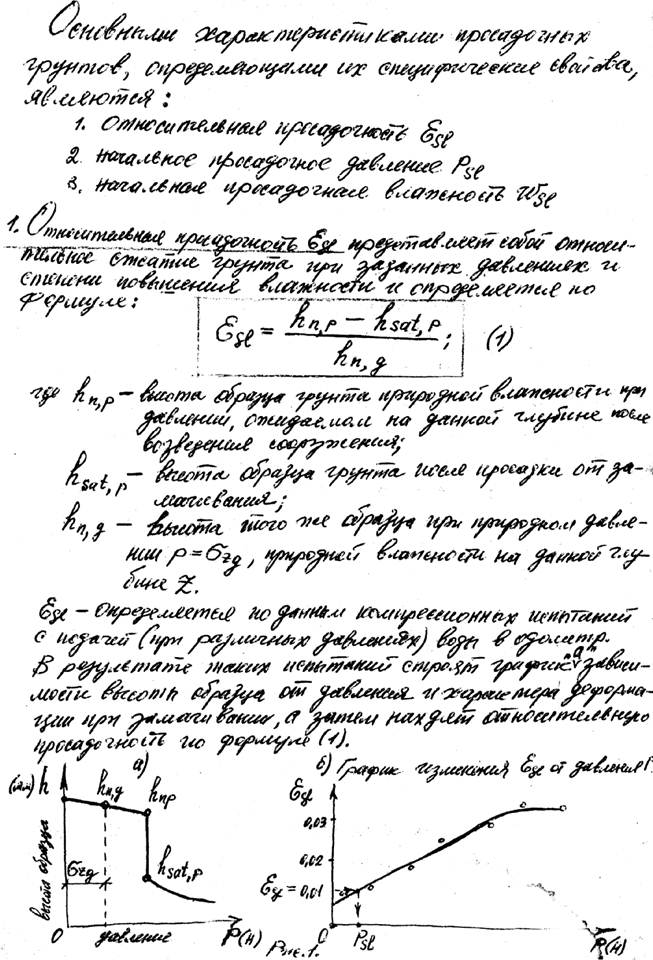 Основными характеристиками просадочных
грунтов, определяющими их специфические свойства,
являются:
1. Относительная просадочность Esl
2. Начальное просадочное давление Psl
3. Начальная просадочная влажность Wsl
1. Относительная просадочность Esl представляет собой относи-
тельное сжатие грунта при заданных давлениях и
степени повышения влажности и определяется по
формуле:
Esl = (hn,p – hsat,p) / hn,g ; (1)
где hn,p – высота образца грунта природной влажности при
давлении, ожидаемом на данной глубине после
возведения сооружения;
hsat,p – высота образца грунта после просадки от за-
мачивания;
hn,g – высота того же образца при природном давле-
нии p = σzg, природней влажности на данной глу-
бине Z.
Esl – определяется по данным компрессионных испытаний
с подачей (при различных давлениях) воды в одометр.
В результате таких испытаний строят график "а" зависи-
мости высоты образца от давления и характера деформа-
ции при замачивании, а затем находят относительную
просадочность по формуле (1).
а)
(мм) h
hn,g
hnp
hsat,p
σzg
высота образца
0
давление
P(н)
б) График изменения Esl от давления P.
Esl
0,03
0,02
Esl = 0,01
0
Psl
P(н)
Рис. 1.